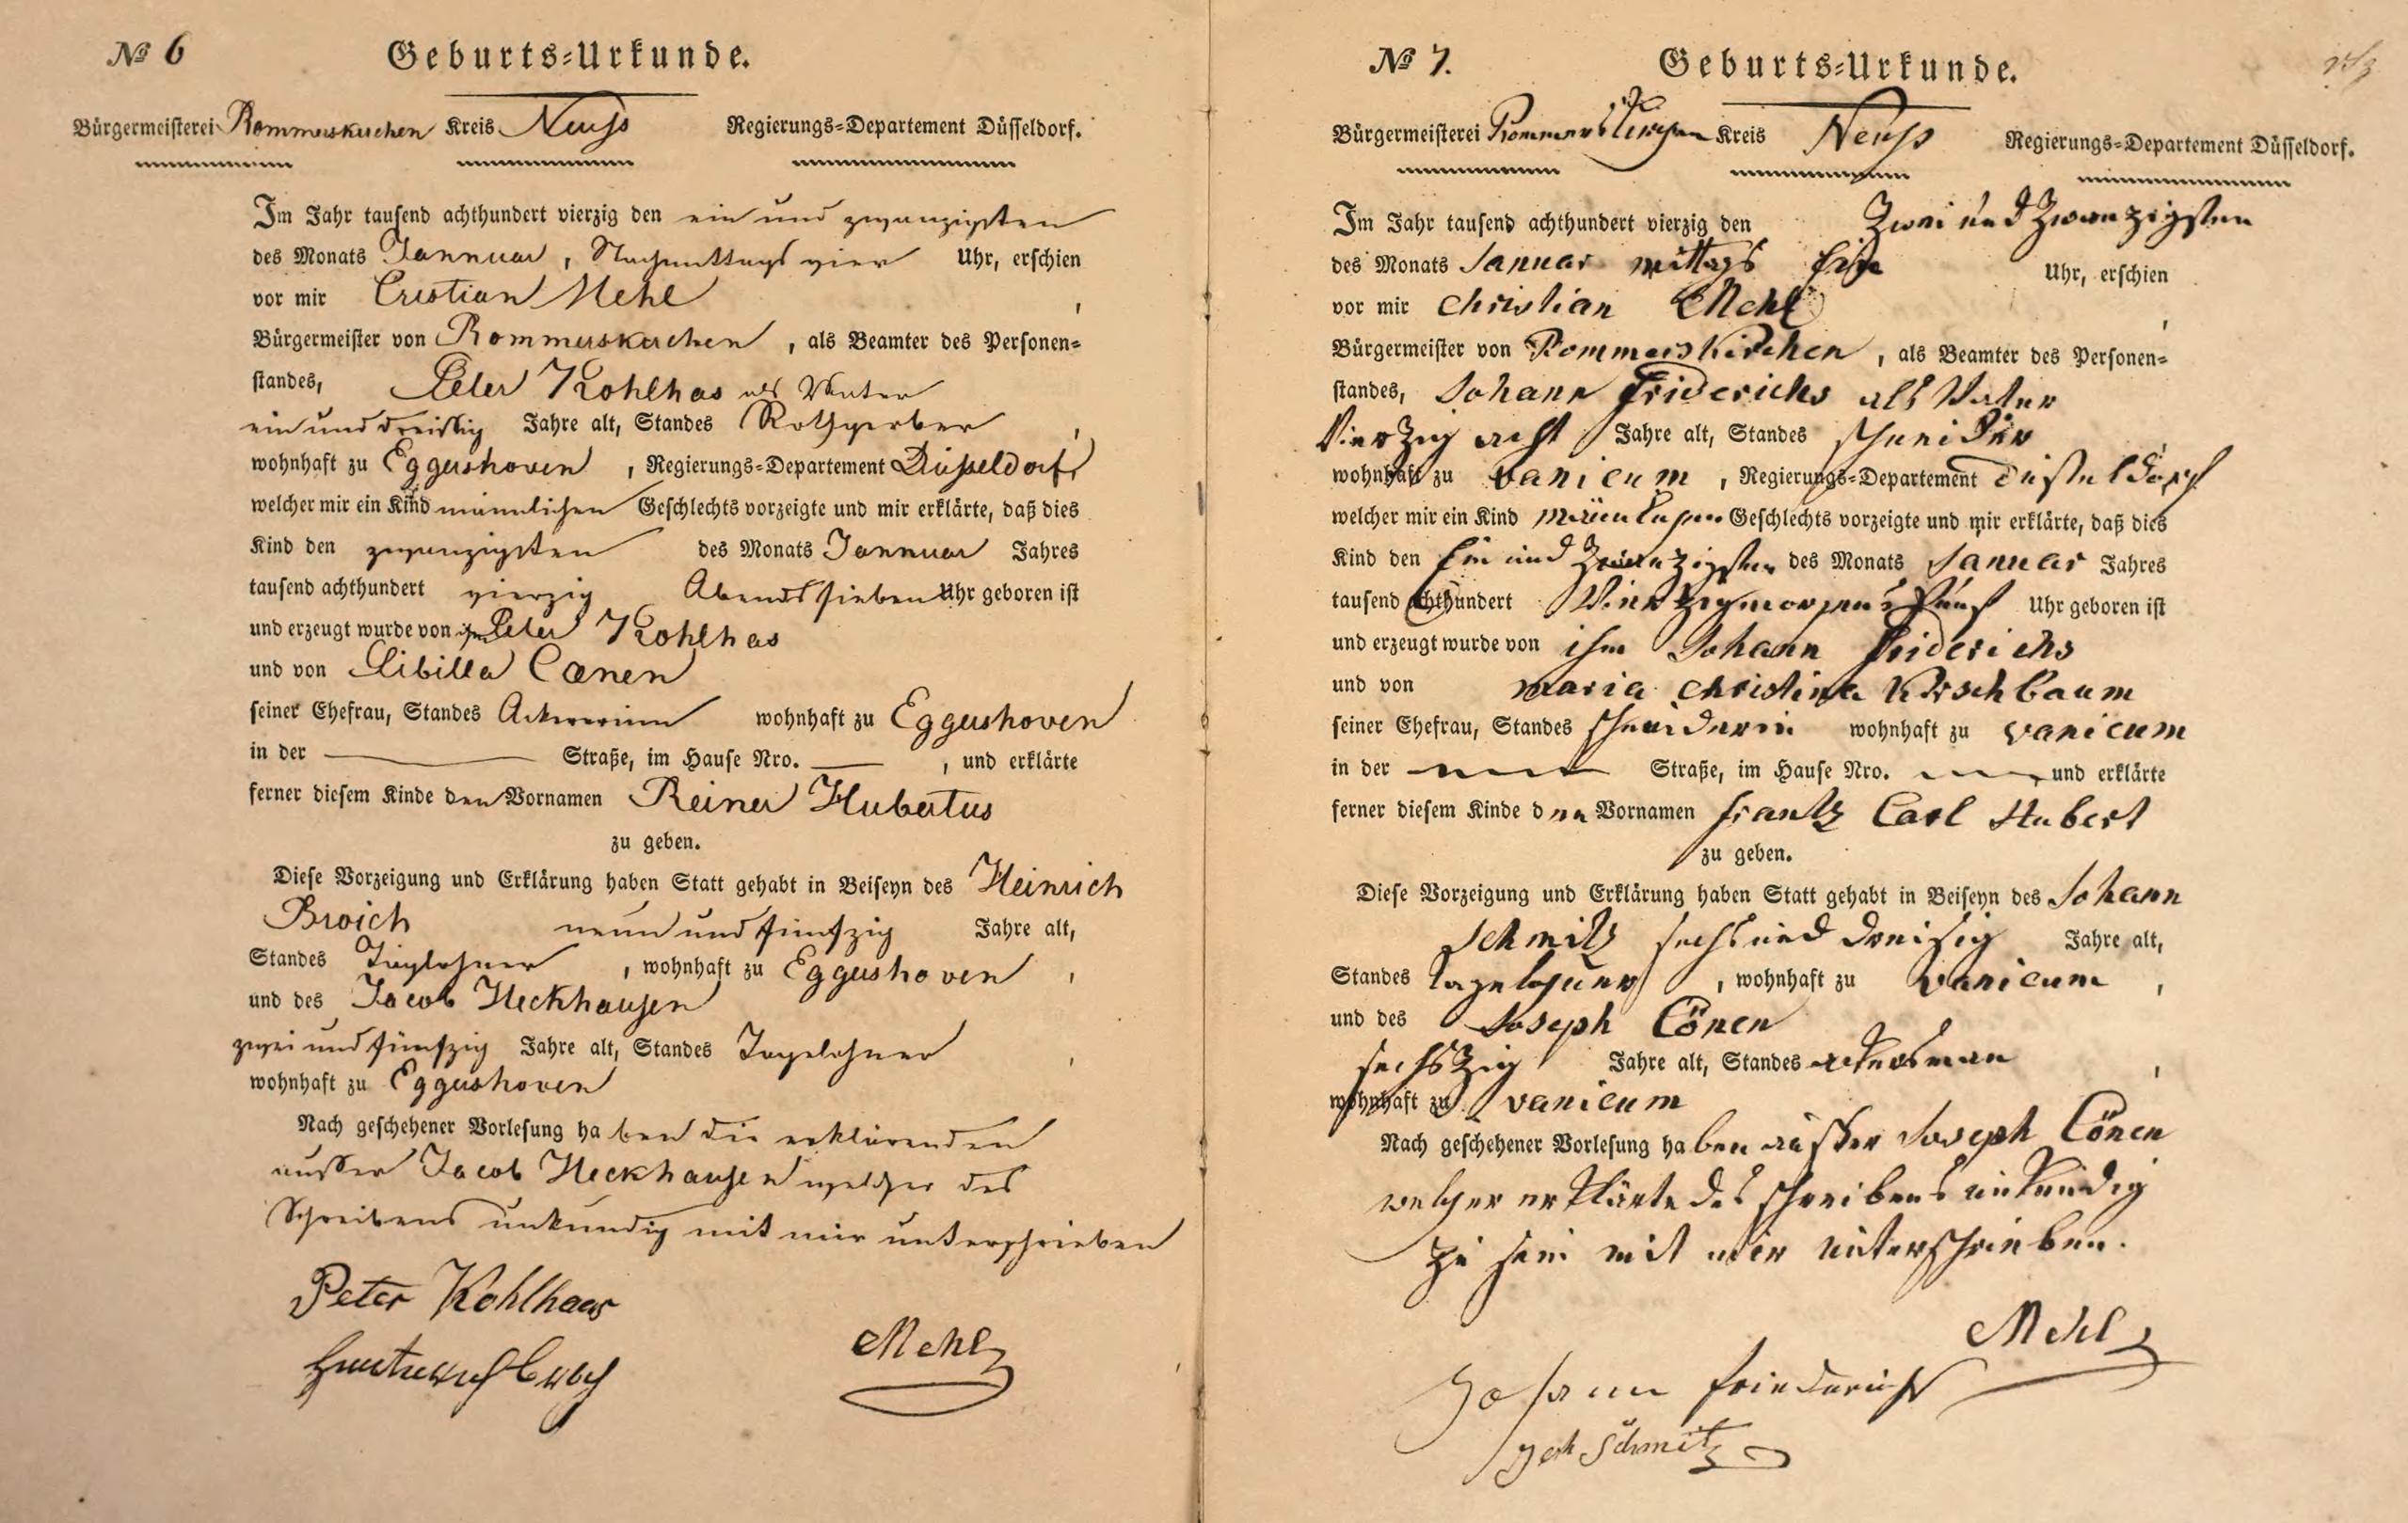 № 6
Geburts=Urkunde.
Bürgermeisterei Rommerskirchen Kreis Neuss Regierungs=Departement Düsseldorf.
Im Jahr tausend achthundert vierzig den ein und zwanzigsten
des Monats Jannuar, Nachmittags vier Uhr, erschien
vor mir Cristian Mehl ,
Bürgermeister von Rommerskirchen, als Beamter des Personen=
standes, Peter Kohlhas als Vater
ein und dreissig Jahre alt, Standes Rothgerber ,
wohnhaft zu Eggershoven, Regierungs=Departement Düsseldorf,
welcher mir ein Kind männlichen Geschlechts vorzeigte und mir erklärte, daß dies
Kind den zwanzigsten des Monats Jannuar Jahres
tausend achthundert vierzig Abends sieben Uhr geboren ist
und erzeugt wurde von ihm Peter Kohlhas
und von Sibilla Cönen
seiner Ehefrau, Standes Ackererinn wohnhaft zu Eggershoven
in der — Straße, im Hause Nro. —, und erklärte
ferner diesem Kinde den Vornamen Reiner Hubertus
zu geben.
Diese Vorzeigung und Erklärung haben Statt gehabt in Beiseyn des Heinrich
Broich neun und fünfzig Jahre alt,
Standes Taglohner, wohnhaft zu Eggershoven ,
und des Jacob Heckhausen
zwei und fünfzig Jahre alt, Standes Tagelohner ,
wohnhaft zu Eggershoven
Nach geschehener Vorlesung haben die erklärenden
ausser Jacob Heckhausen welcher des
Schreibens unkundig mit mir unterschrieben
Peter Kohlhaas
Mehl
№ 7.
Geburts=Urkunde.
Bürgermeisterei Rommerskirchen Kreis Neuss Regierungs=Departement Düsseldorf.
Im Jahr tausend achthundert vierzig den Zwei und Zwanzigsten
des Monats Januar mittags Uhr, erschien
vor mir Christian Mehl ,
Bürgermeister von Rommerskirchen, als Beamter des Personen=
standes, Johann Friderichs als Vater
Vierzig acht Jahre alt, Standes schneider ,
wohnhaft zu vanicum, Regierungs=Departement Düsseldorf
welcher mir ein Kind Geschlechts vorzeigte und mir erklärte, daß dies
Kind den Ein und Zwanzigsten des Monats Januar Jahres
tausend achthundert Vierzig morgens Fünf Uhr geboren ist
und erzeugt wurde von ihm Johann Friderichs
und von maria christina Kirschbaum
seiner Ehefrau, Standes schneiderin wohnhaft zu vanicum
in der — Straße, im Hause Nro. — und erklärte
ferner diesem Kinde den Vornamen Frantz Carl Hubert
zu geben.
Diese Vorzeigung und Erklärung haben Statt gehabt in Beiseyn des Johann
Schmitz sechs und dreisig Jahre alt,
Standes tagelohner, wohnhaft zu vanicum ,
und des Joseph Cönen
sechszig Jahre alt, Standes ackersman ,
wohnhaft zu vanicum
Nach geschehener Vorlesung haben ausser Joseph Cönen
welcher erklärte des schreibens unkundig
zu sein mit mir unterschrieben.
Mehl
Johann Friederichs
Joh Schmitz